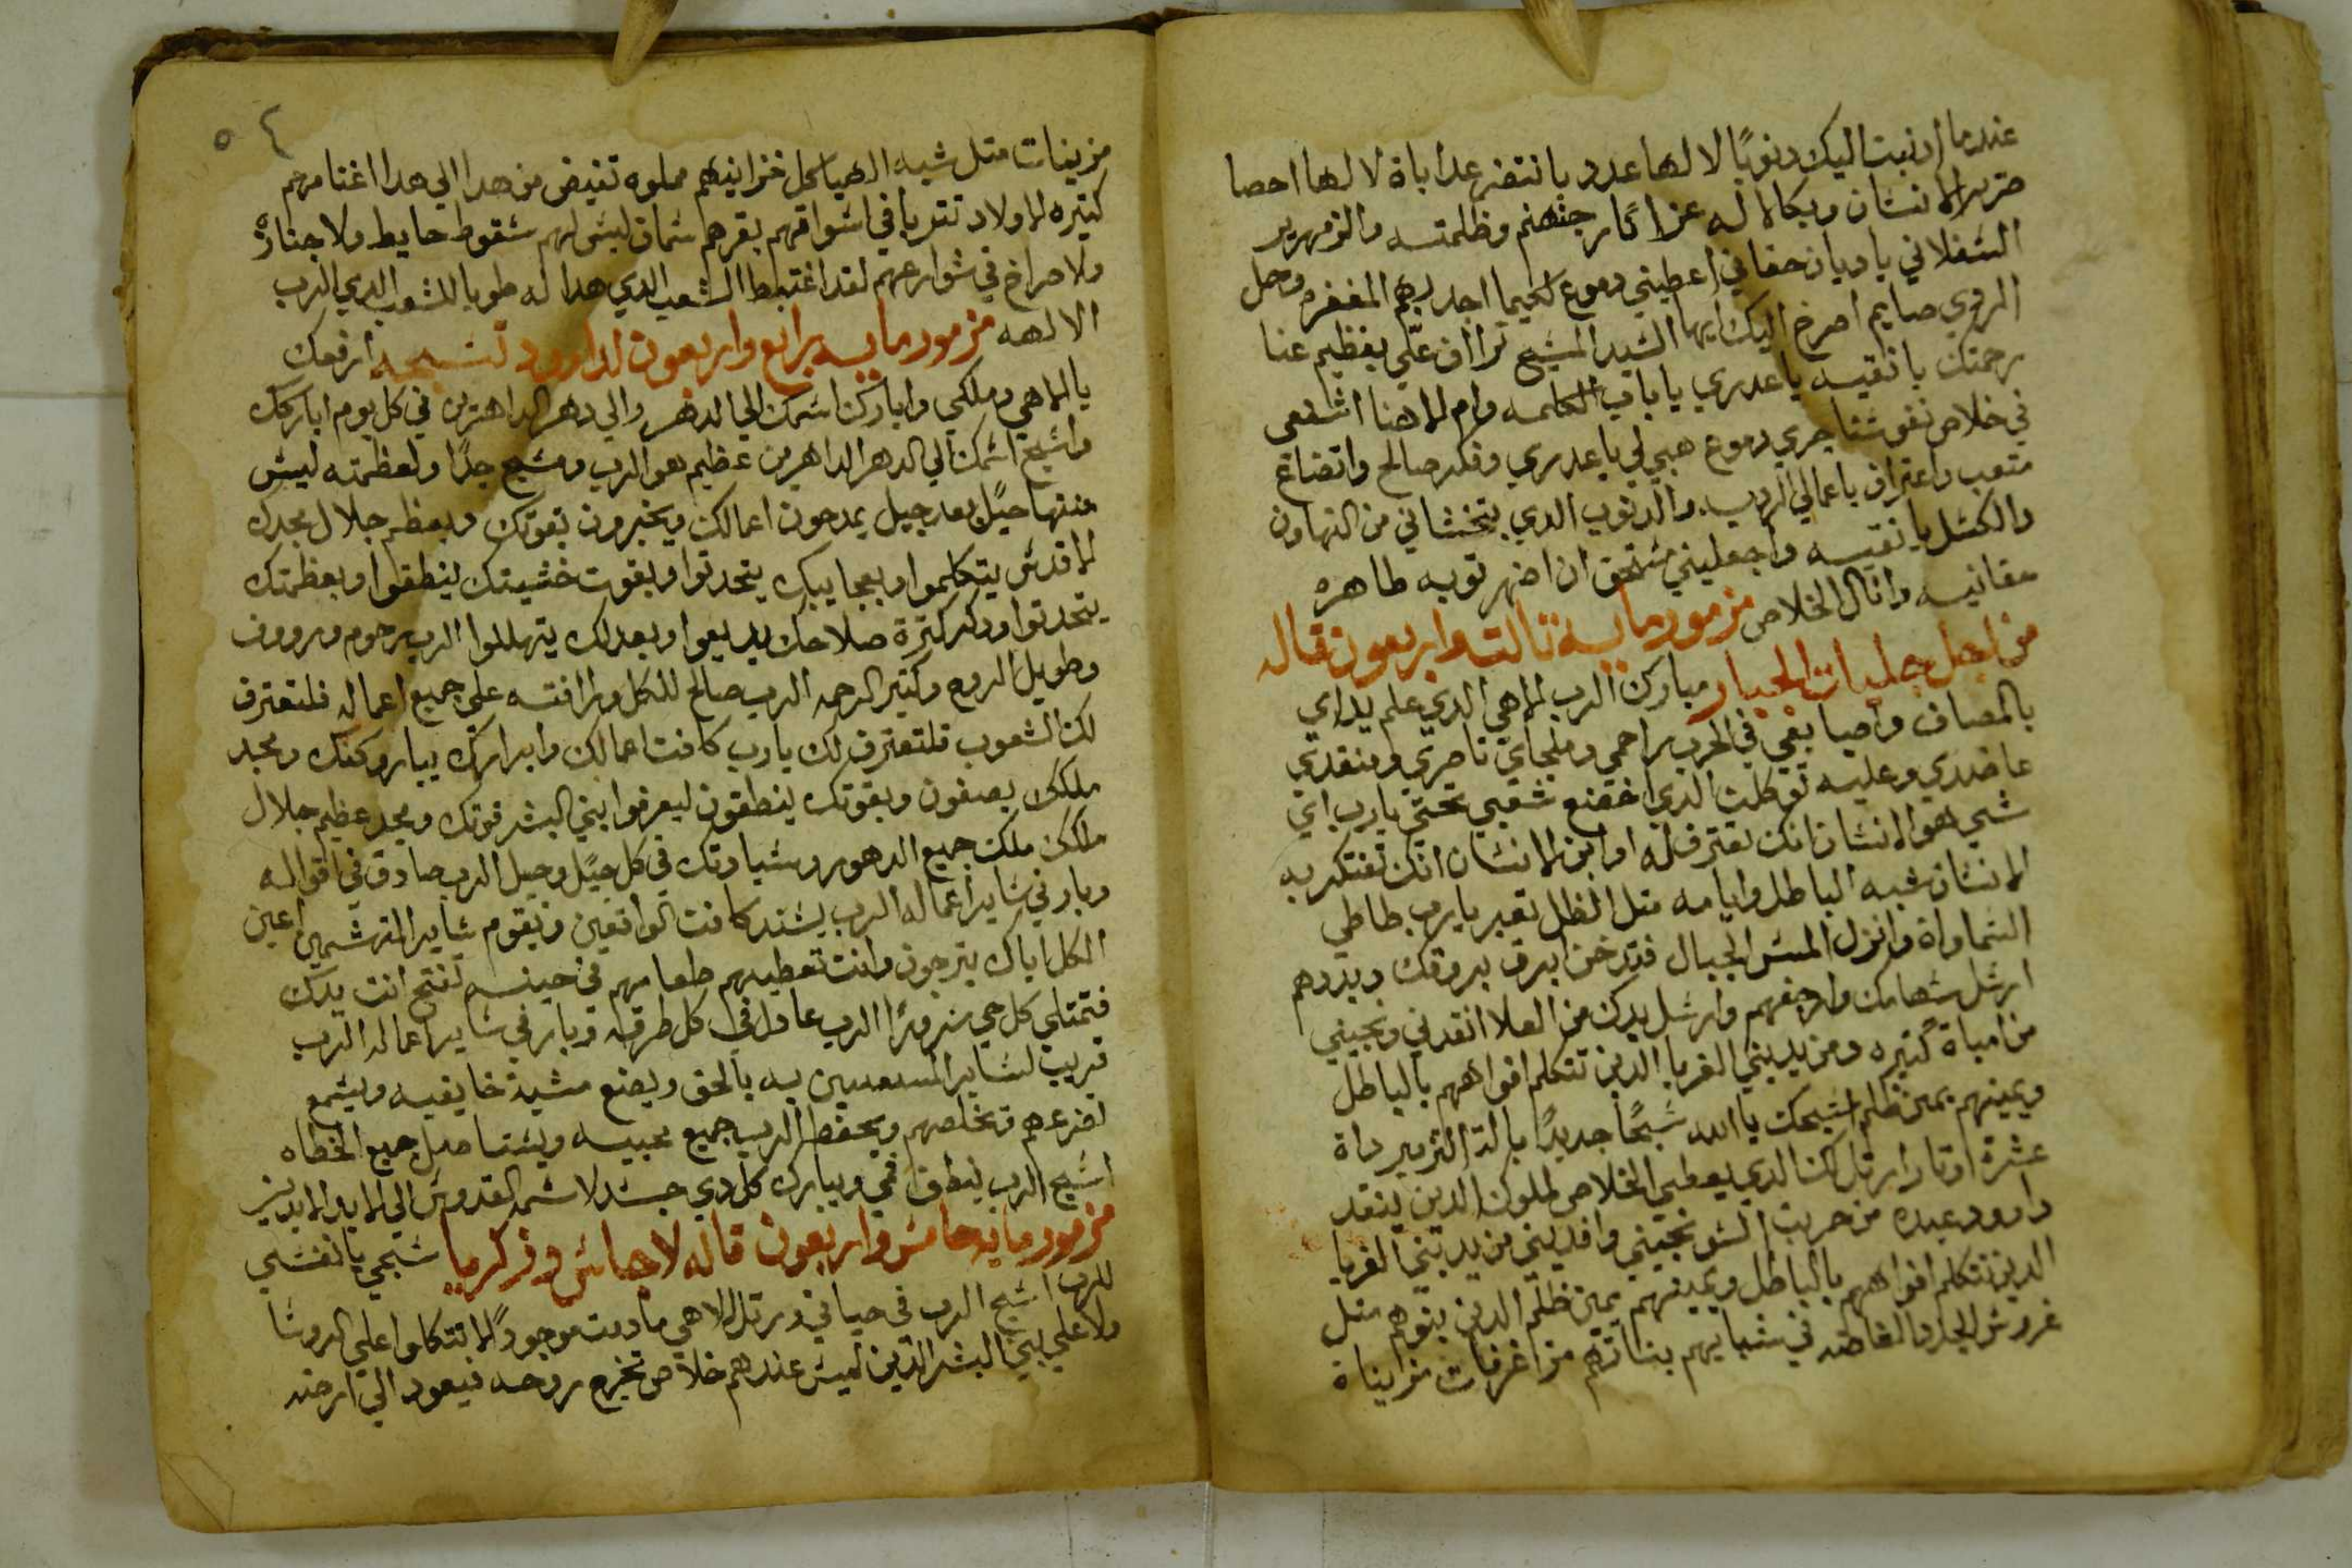 عندما ادنبت اليك دنوبًا لا لها عدد يا نتفنر عداباة لا لها احصا
صرير الانسان وبكا لا له عزا كار جهنم وظلمته والزمهرير
السفلاني يا ديان حقا في اعطيني دموع لكيما اجد بهم المغفره وحل
الروحي صايم اصرخ اليك ايها السيد المسيح تراأف علي بعظيم غنا
رحمتك يا نقيه يا عدري يا باب الكلمه وام الاهنا اشفعي
في خلاص نفوسنا جري دموع هبي لي يا عدري وفكر صالح واتضاع
متعب واعتراف باعمالي الرديه والدنوب الدي بتخشاني من التهاون
والكسل يا نقيه واجعليني مستحق ان اضهر توبه طاهره
مقانيه وانال الخلاص مزمور مايه تالت واربعون قاله
من اجل جليات الجبار مبارك الرب الاهي الدي علم يداي
بالمصاف واصابعي في الحرب راحمي وملجاي ناصري ومنقدي
عاضدي وعليه توكلت الدي اخضع شعبي تحتي يا رب اي
شي هو الانسان انك تعترف له او ابن الانسان انك تفتكر به
الانسان شبه الباطل وايامه متل الظل تعبر يا رب طاطي
السماواة وانزل المس الجبال فتدخن ابرق بروقك وبددهم
ارسل سهامك وارجفهم وارسل يدك من العلا انقدني ونجيني
من امياة كتيره ومن يد بني الغربا الدين تتكلم افواههم بالباطل
ويمينهم يمين ظلم اسبحك يا الله سبحًا جديدًا بالة التزمير داة
عشرة اوتار ارتل لك الدي يعطي الخلاص لملوك الدين ينقد
داوود عبده من حربت السو نجيني وافديني من يد بني الغربا
الدين تتكلم افواههم بالباطل ويمينهم يمين ظلم الدين بنوهم متل
غروس الجدد الغاضه في شبابهم بناتهم مزاغرفات مزايناة
٥٤
مزينات متل شبه الهياكل خزاينهم مملوه تفيض من هدا الي هدا اغنامهم
كتيره الاولاد تتربا في اسواقهم بقرهم سمان ليس لهم سقوط حايط ولا جنازه
ولا صراخ في شوارعهم لقد اغتبط الشعب الدي هدا له طوبا للشعب الدي الرب
الالهه مزمور مايه رابع واربعون لداوود تسبحه ارفعك
يا الاهي وملكي وابارك اسمك الي الدهر والي دهر الداهرين في كل يوم اباركك
واسبح اسمك الي الدهر الداهرين عظيم هو الرب ومسبح جدًا ولعظمته ليس
منتها جيل بعد جيل يمدحون اعمالك ويخبرون بقوتك وبعظم جلال مجدك
الاقدس يتكلموا وبعجايبك يتحدتوا وبقوت خشيتك ينطقوا وبعظمتك
يتحدتوا ودكر كترة صلاحك يديعوا وبعدلك يتهللوا الرب رحوم وروون
وطويل الروح وكتير الرحمه الرب صالح للكل ورافته علي جميع اعماله فلتعترف
لك الشعوب فلتعترف لك يا رب كافت اعمالك وابرارك يباروكك ومجد
ملكك يصفون وبقوتك ينطقون ليعرفوا بني البشر قوتك ومجد عظيم جلال
ملكك ملكك جميع الدهور وسيادتك في كل جيل وجيل الرب صادق في اقواله
وبار في ساير اعماله الرب يسند كافت الواقعين ويقوم ساير المتهشمين اعين
الكل اياك يترجون وانت تعطيهم طعامهم في حينه تفتح انت يدك
فتمتلي كل حي سرورًا الرب عادل في كل طرقه وبار في ساير اعماله الرب
قريب لساير المستعدين به بالحق ويصنع مشية خايفيه ويسمع
لضرعهم وتخلصهم ويحفظ الرب جميع محبيه ويستاصل جميع الخطاه
اسبح الرب ينطق فمي ويبارك كل دي جسد لاسمه القدوس الي الابد الابدين
مزمور مايه خامس واربعون قاله لاجاس وزكريا سبحي يا نفسي
للرب اسبح الرب في حياتي ورتل لالاهي ما دمت موجودًا لا تتكلوا علي الروسا
ولا علي بني البشر الدين ليس عندهم خلاص تخرج روحه فيعود الي ارضه